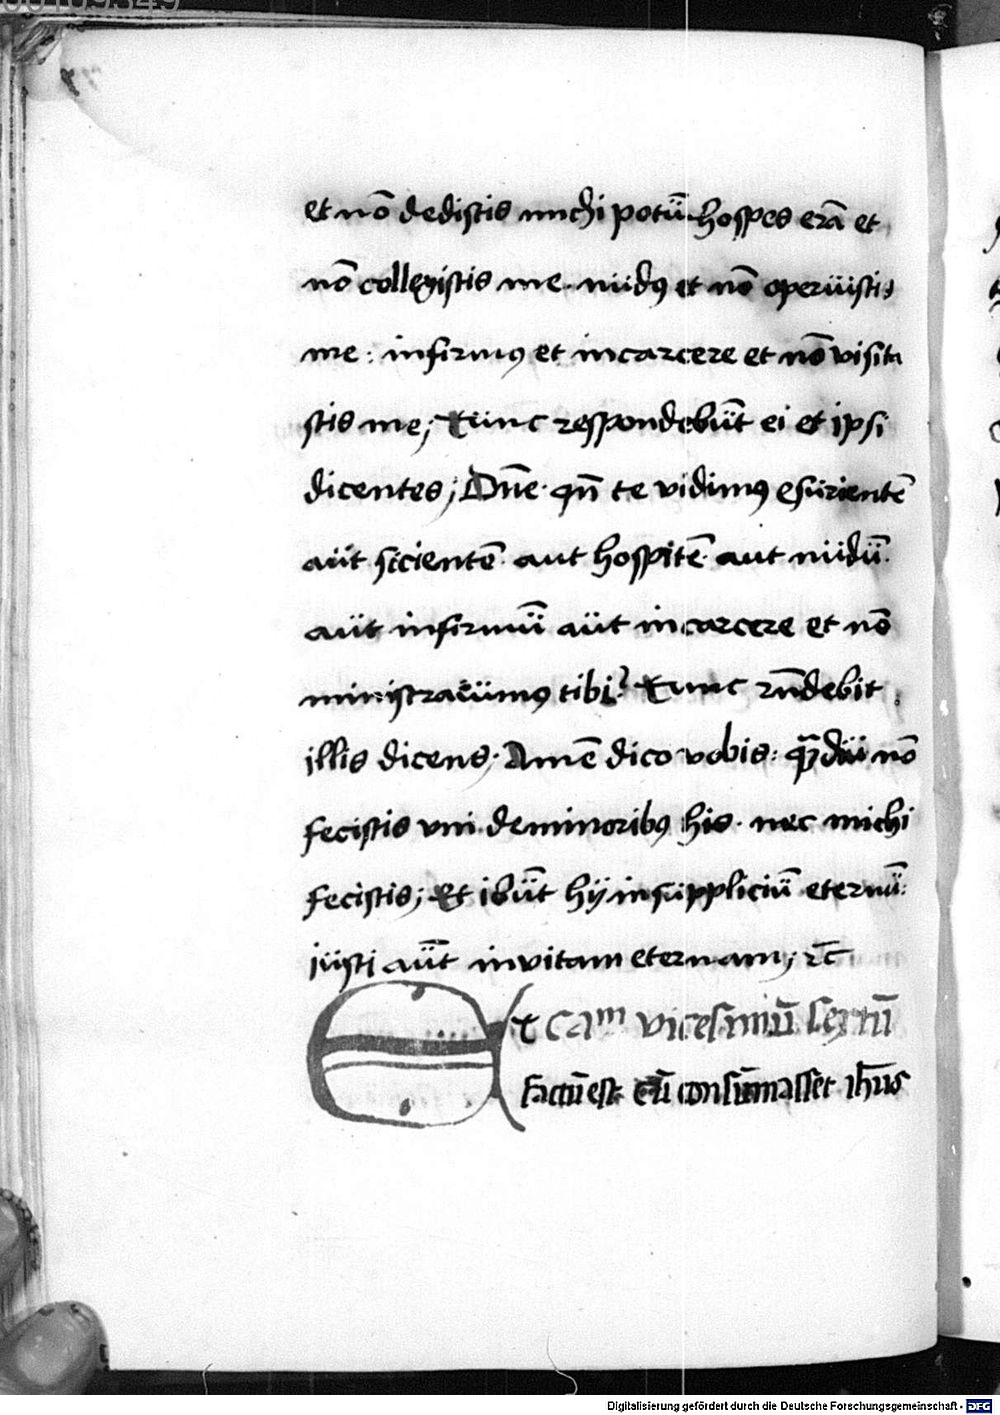 et nō dedistis michi potū· hospes erā et
nō collegistis me· nudꝰ et nō operuistis
me: infirmꝰ et incarcere et nō visita
stis me; Tunc respondebūt ei et ipsi
dicentes; Dn̄e· qn̄ te vidimꝰ esurientē
aut scientē· aut hospitē· aut nudū·
aut infirmū aut incarcere et nō
ministraūimꝰ tibi? Tunc rn̄debit
illis dicens· Amē dico vobis: qͣ̄diu nō
fecistis vni deminoribꝰ his· nec michi
fecistis; Et ibūt hij insuppliciū eternū:
iusti aūt invitam eternam; rc̄
Et caᵐ vicesimū sextū
Factū est cū consūmasset ih̄us
Digitalisierung gefördert durch die Deutsche Forschungsgemeinschaft - DFG